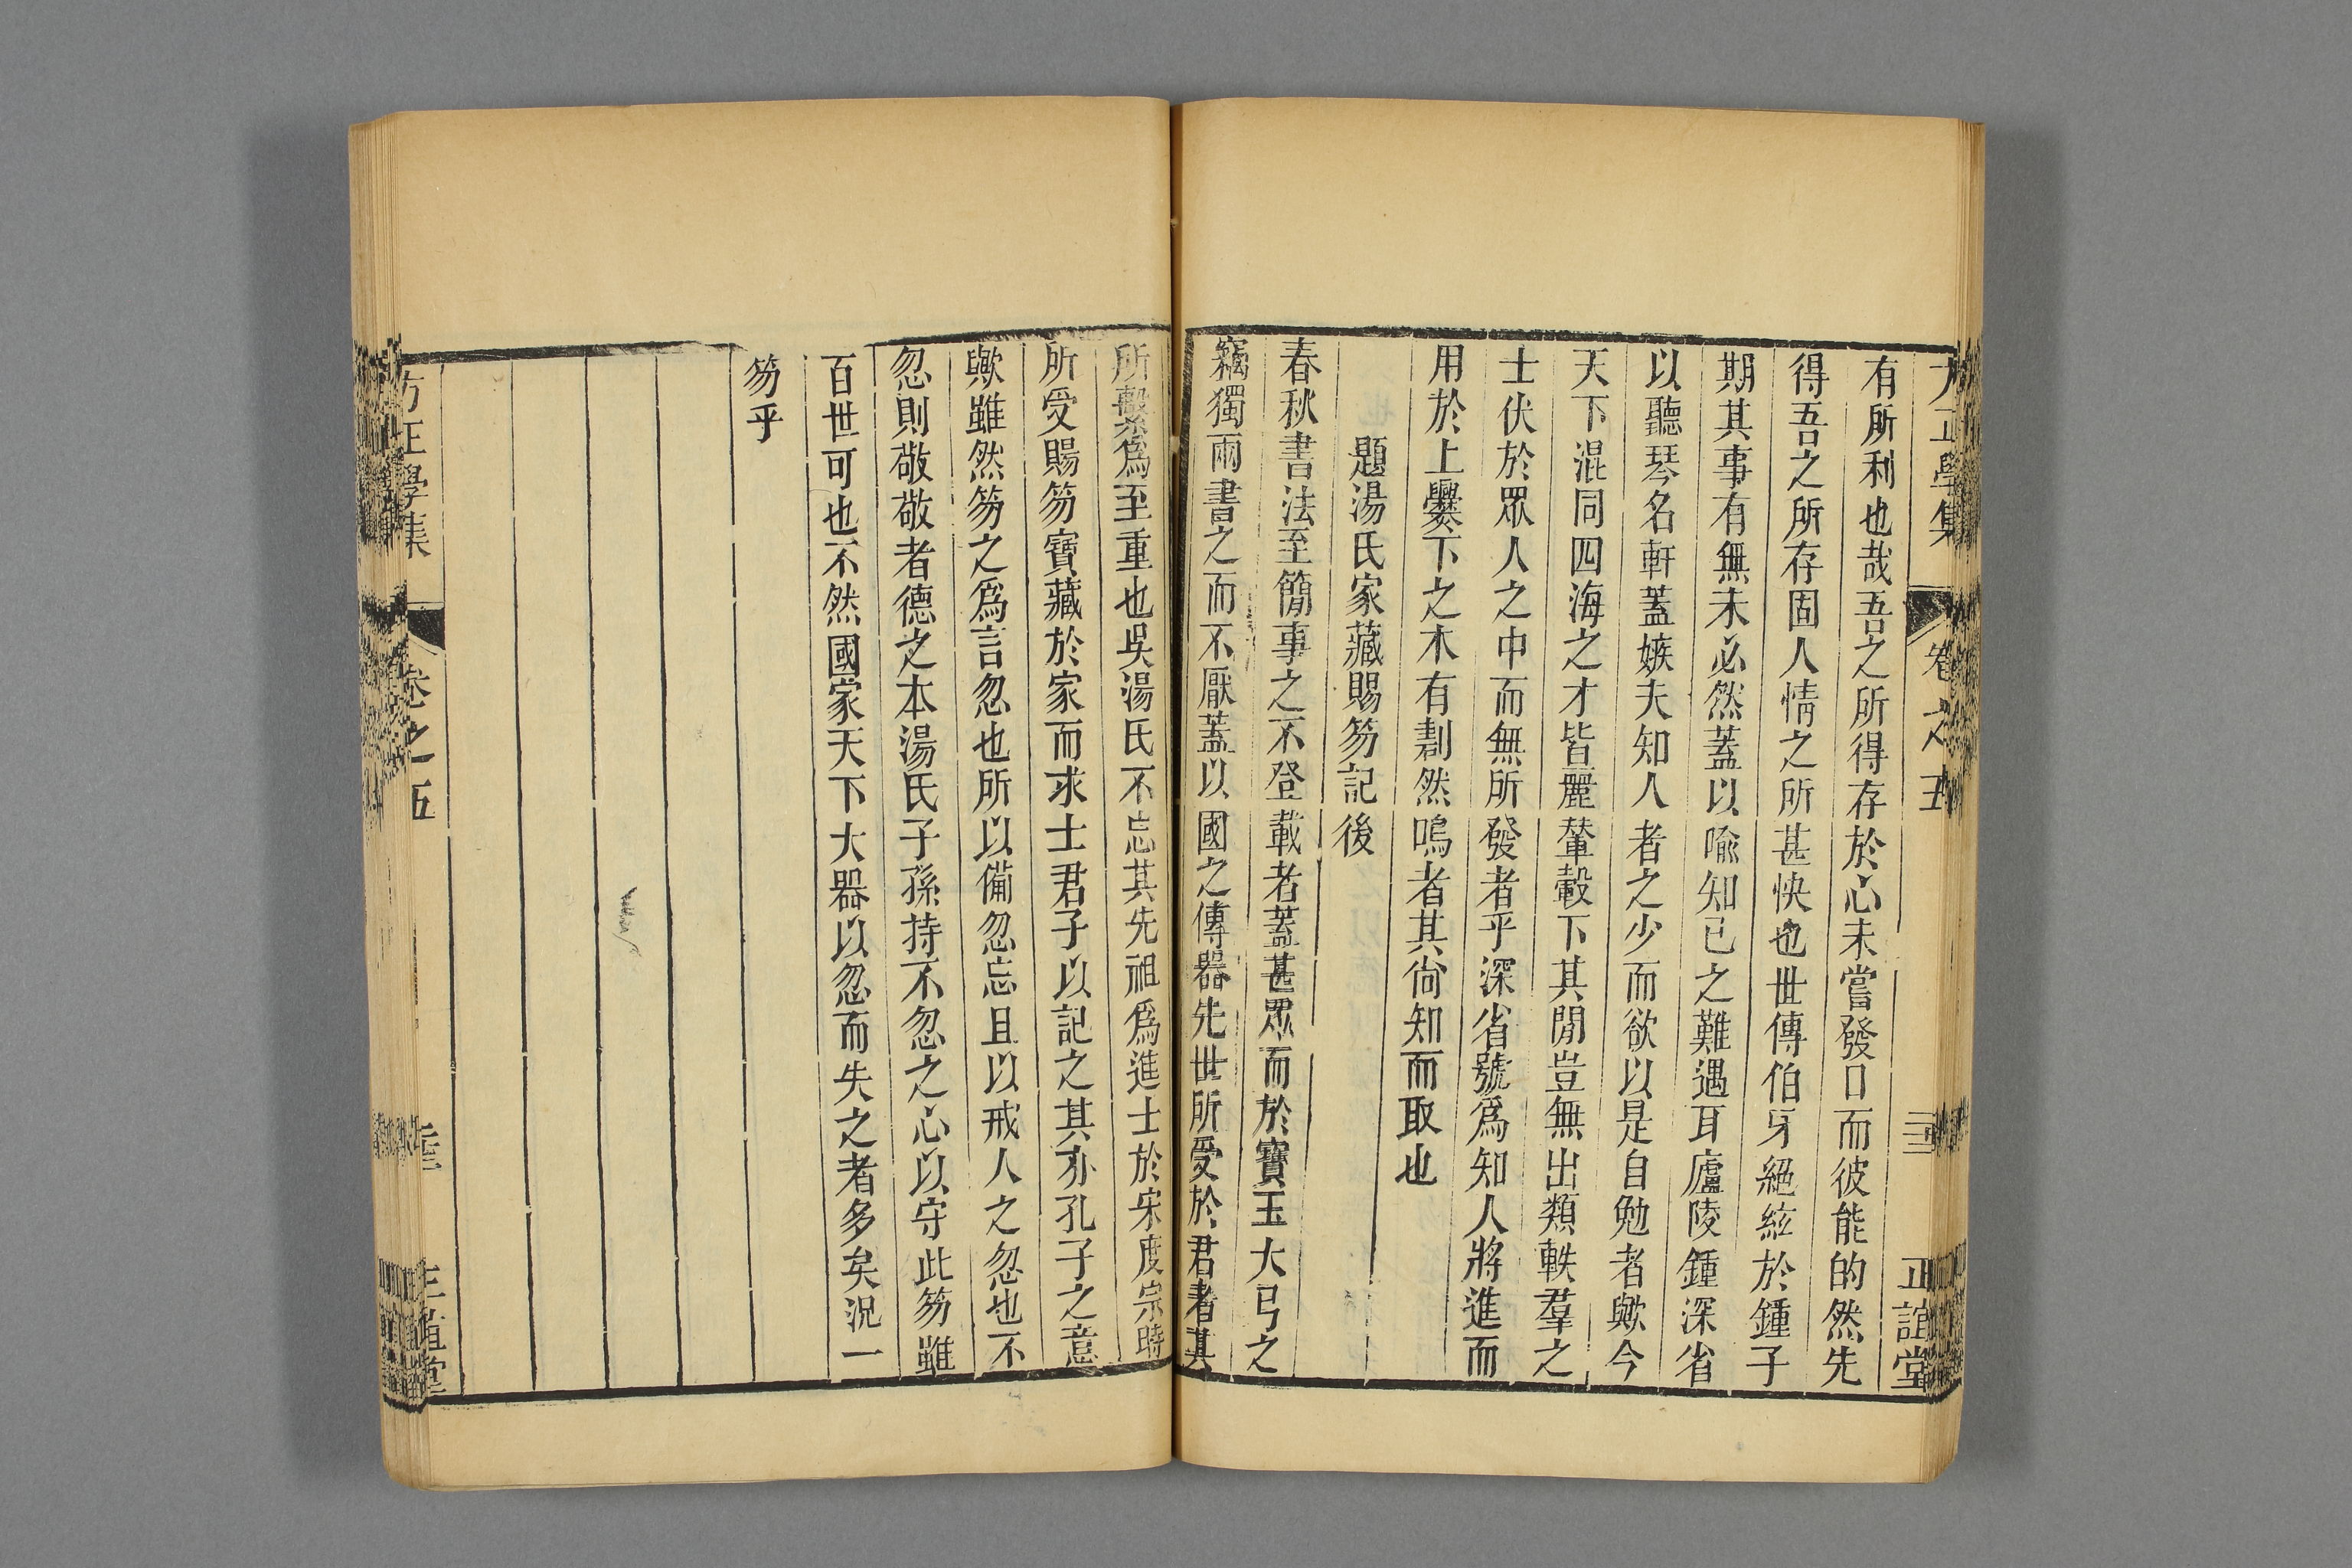 有所利也哉吾之所得存於心未嘗發口而彼能的然先
得吾之所存固人情之所甚快也世傳伯牙絕絃於鍾子
期其事有無未必然蓋以喩知已之難遇耳廬陵鍾深省
以聽琴名軒蓋嫉夫知人者之少而欲以是自勉者歟今
天下混同四海之才皆麗輦轂下其閒豈無出類軼羣之
士伏於眾人之中而無所發者乎深省號爲知人將進而
用於上爨下之木有剨然鳴者其尙知而取也
題湯氏家藏賜笏記後
春秋書法至簡事之不登載者蓋甚眾而於寶玉大弓之
竊獨兩書之而不厭蓋以國之傳器先世所受於君者其
所繫爲至重也吳湯氏不忘其先祖爲進士於宋度宗時
所受賜笏寶藏於家而求士君子以記之其亦孔子之意
歟雖然笏之爲言忽也所以備忽忘且以戒人之忽也不
忽則敬敬者德之本湯氏子孫持不忽之心以守此笏雖
百世可也不然國家天下大器以忽而失之者多矣況一
笏乎
方正學集
卷之五
正誼堂